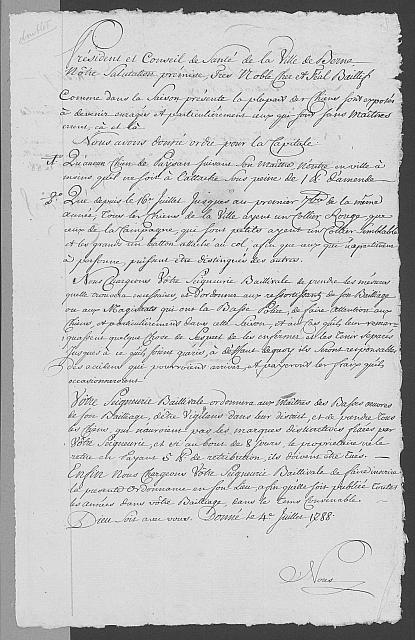 Président et Conseil de Santé de la Ville de Berne
Nôtre Salutation premise, Très Noble Cher et Féal Baillif
Comme dans la Saison présente la plupart des Chiens sont exposés
à devenir enragés et particulièrement ceux qui sont sans Maîtres
errans çà et là
Nous avons donné ordre pour la Capitale
1º Qu'aucun Chien de Paysan suivant son Maître n'entre en ville à
moins qu'il ne soit à l'attache sous peine de 1 ₶ d'amende
2º Que depuis le 16e Juillet jusques au premier 7bre de la même
année, tous les Chiens de la Ville ayent un Collier Rouge, que
ceux de la Campagne, qui sont petits ayent un Collier semblable
et les grands un batton attaché au col, afin que ceux qui appartiennent
à personne, puissent être distingués des autres.
Nous Chargeons Vôtre Seigneurie Baillivale de prendre les mésures
quelle trouvera nécessaires, et d'ordonner aux ressortissants de son Bailliage
ou aux Magistrats qui ont la Basse Police, de faire attention aux
Chiens, et particulièrement dans cette Saison, et au cas qu'ils leur remar-
quassent quelque chose de suspect de les enfermer ou les tenir séparés
jusques à ce qu'ils soient guéris, à deffaut dequoy ils seront responsables
des accidens qui pourroient arriver, et payeront les fraix qu'ils
occasionneroient
Vôtre Seigneurie Baillivale ordonnera aux Maîtres des Basses œuvres
de son Bailliage, d'être vigilans dans leur district, et de prendre tous
les Chiens, qui n'auront pas les marques distinctives fixées par
Vôtre Seigneurie, et si au bout de 8 jours, le proprietaire ne le
retire en payant 5 de retribution, ils doivent être tués. —
Enfin Nous Chargeons Vôtre Seigneurie Baillivale de faire inscrire
la présente Ordonnance en son Lieu, afin qu'elle soit publiée toutes
les années dans vôtre Bailliage, dans le tems Convenable.
Dieu soit avec vous. Donné le 4e Juillet 1788
Nous